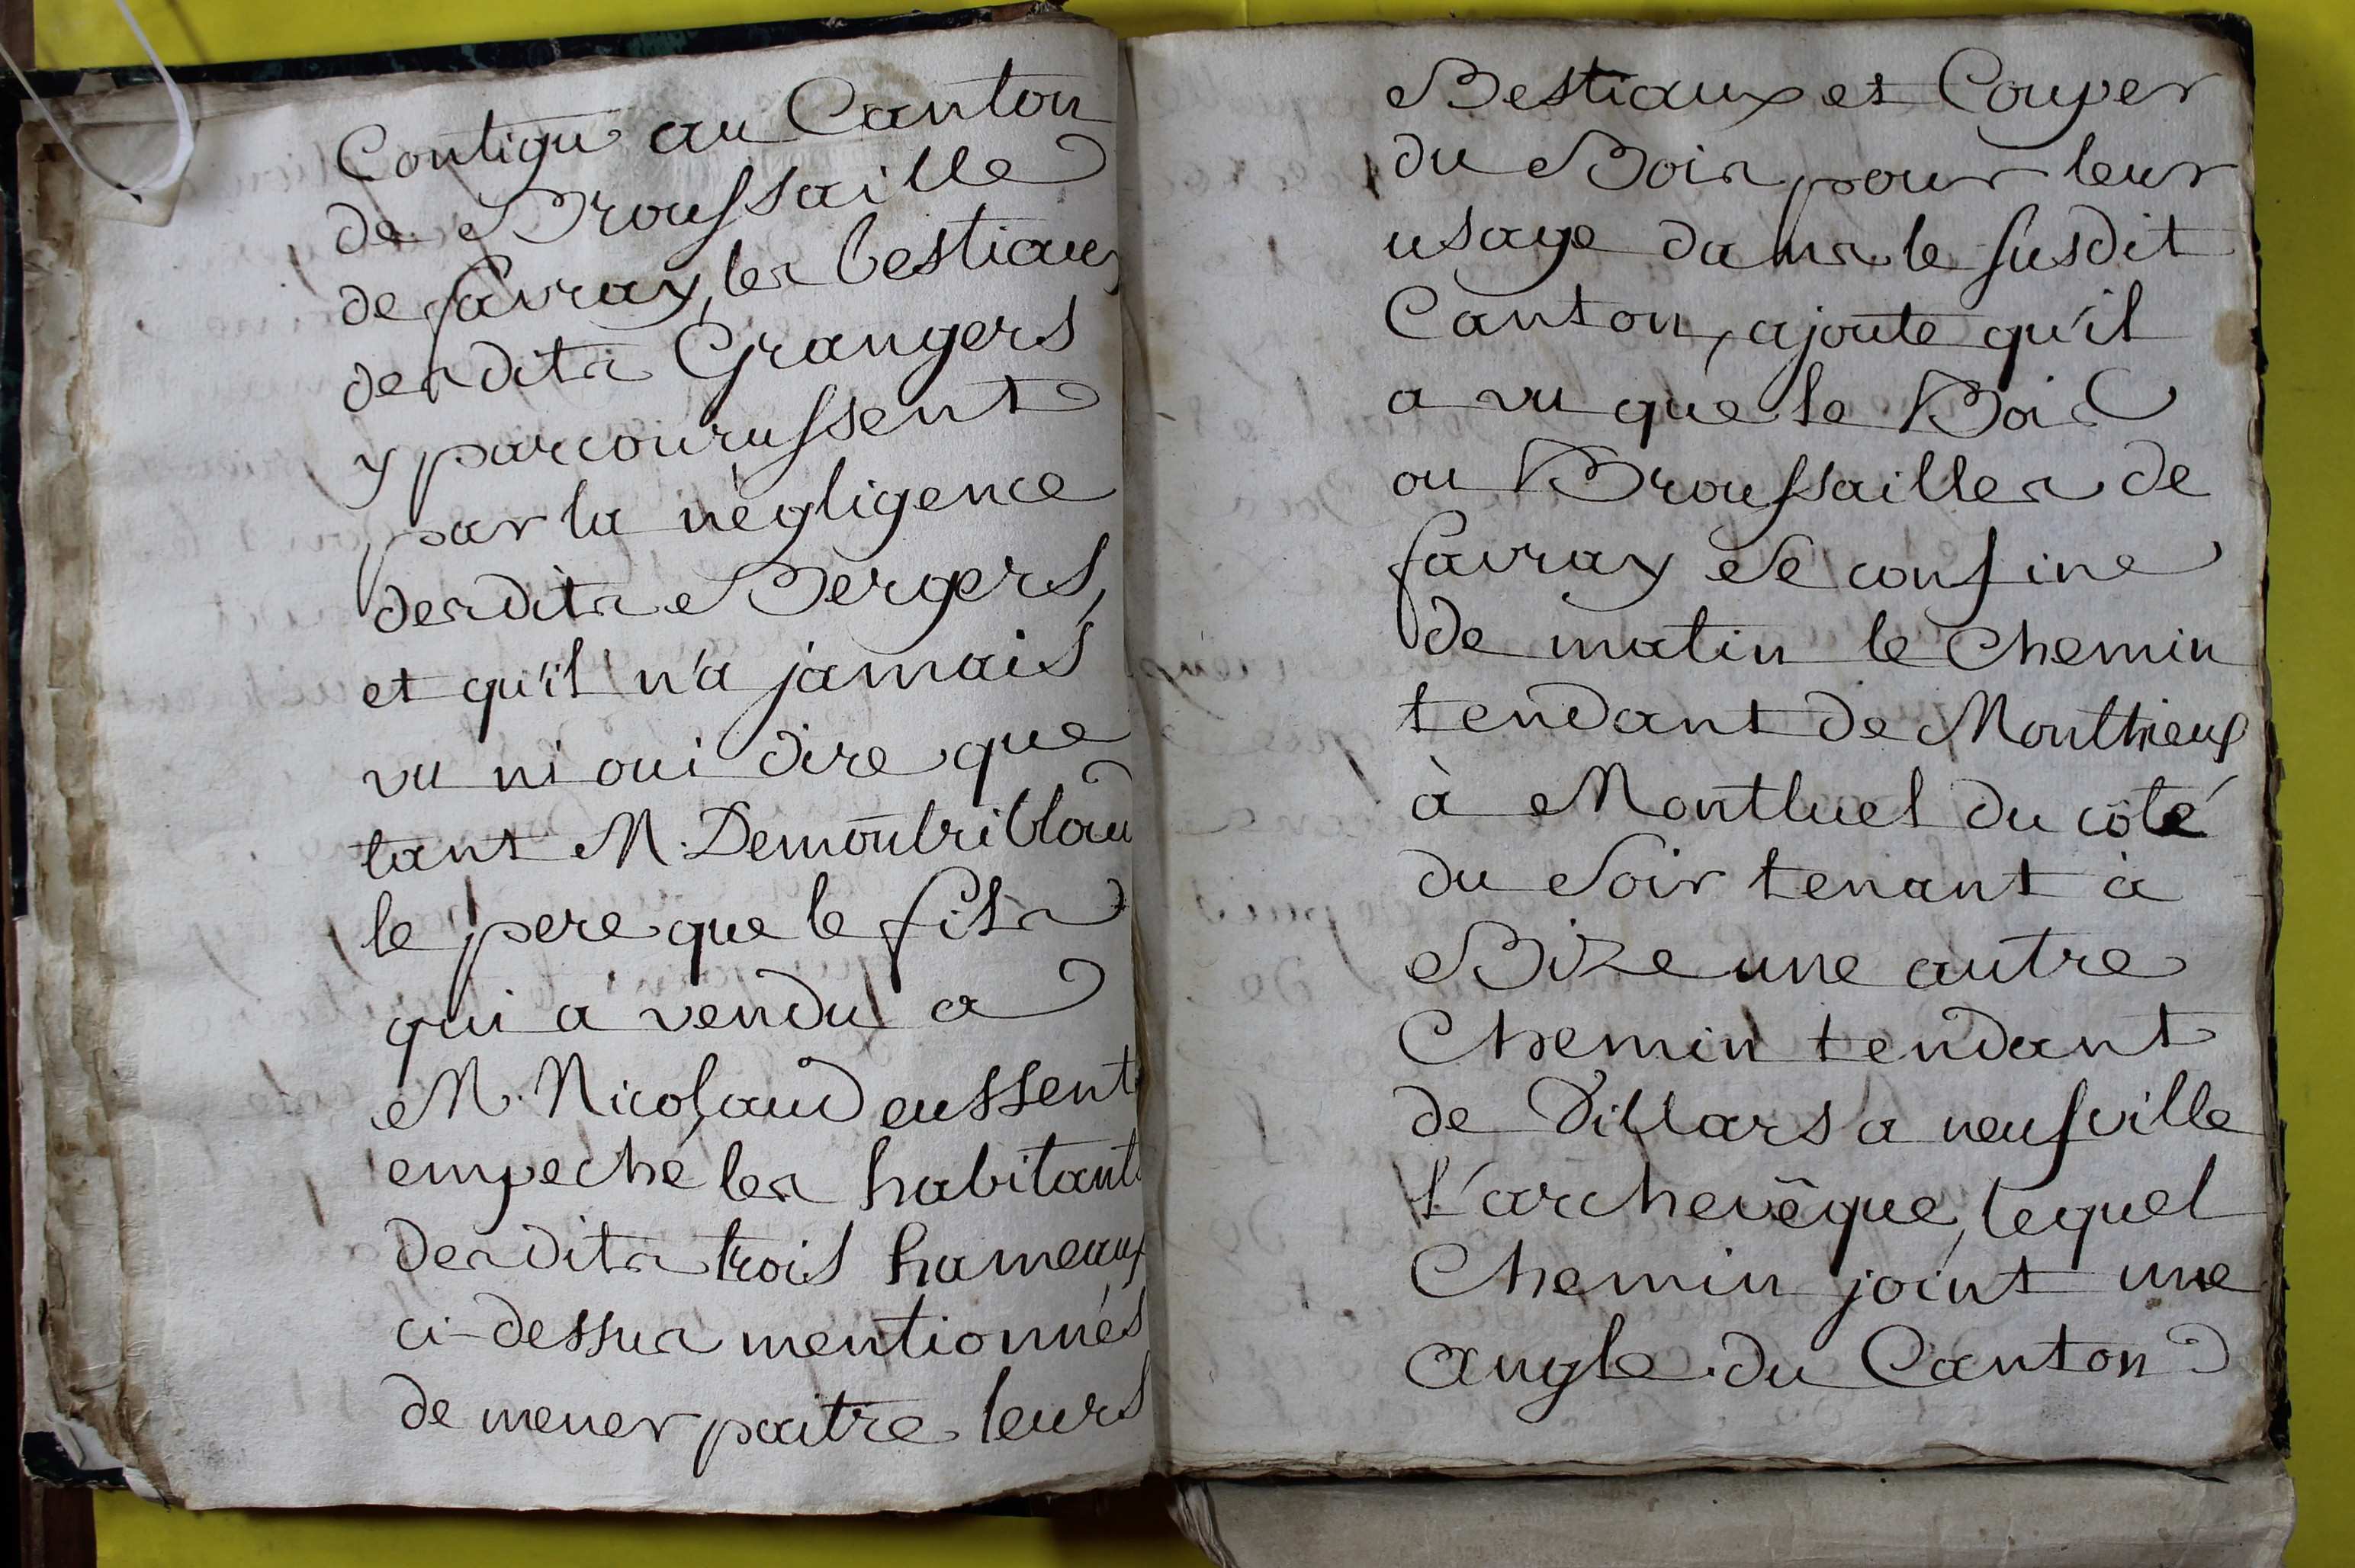 Contigu au Canton
de Broussaille
de favray, les bestiaux
desdits Grangers
y parcourussent
par la négligence
desdits Bergers,
et qu'il n'a jamais
vu ni oui dire que
tant M. Demontribloud
le pere que le fils
qui a vendu a
M. Nicolaud eussent
empeché les habitants
desdits trois hameaux
ci-dessus mentionnés
de mener paitre leurs
Bestiaux et Couper
du Bois pour leur
usage dans le susdit
Canton, ajoute qu'il
a vu que le Bois
ou Broussailles de
favray se confine
de matin le Chemin
tendant de Monthieux
à Montluel du côté
du Soir tenant à
Bize une autre
Chemin tendant
de Villars a neufville
l'archevêque, lequel
Chemin joint une
angle du Canton